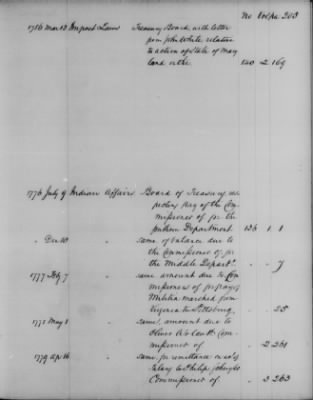 No Vol pa. 203
1786 Mar 13 Impost Laws Treasury Board, with letter
from John White relative
to action of State of Mary
land in the 140 2 169
1776 July 9 Indian Affairs Board of Treasury, res
pecting Pay of the Com
missioners of for the
Department 136 1 1
" Dec 10 " same of balance due to
the Commissioner of, for
the Middle Depart. " " 7
1777 Feby 7 " same amount due to Com
missioners of for pay of
Militia marched from
Virginia to Pittsburg, " " 25
1778 May 1 " same, amount due to
Oliver Wolcott Com
missioner of " 2 261
1779 Ap 16 " same, for remittance on of
Salary to Philip
Commissioner of " 3 263